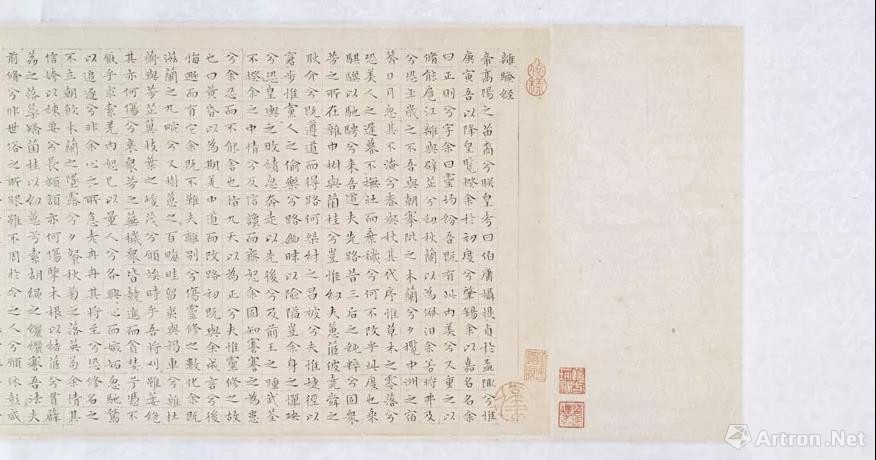 離騷經
帝高陽之苗裔兮朕皇考曰伯庸攝提貞於孟陬兮惟
庚寅吾以降皇覽揆余於初度兮肇錫余以嘉名名余
曰正則兮字余曰靈均紛吾既有此內美兮又重之以
脩能扈江離與辟芷兮紉秋蘭以為佩汨余若將弗及
兮恐年歲之不吾與朝搴阰之木蘭兮夕攬中洲之宿
莽日月忽其不淹兮春與秋其代序惟草木之零落兮
恐美人之遲暮不撫壯而棄穢兮何不改乎此度也乘
騏驥以馳騁兮来吾道夫先路昔三后之純粹兮固衆
芳之所在雜申椒與菌桂兮豈惟紉夫蕙茝彼堯舜之
耿介兮既遵道而得路何桀紂之昌披兮夫惟捷徑以
窘步惟黨人之偷樂兮路幽昧以險隘豈余身之憚殃
兮恐皇輿之敗績忽奔走以先後兮及前王之踵武荃
不揆余之中情兮反信讒而齌怒余固知謇謇之為患
兮余忍而不能舍也指九天以為正兮夫惟靈修之故
也曰黄昏以為期羌中道而改路初既與余成言兮後
悔遁而有它余既不難夫離別兮傷靈修之數化余既
滋蘭之九畹兮又樹蕙之百畮畦留夷與揭車兮雜杜
蘅與芳芷冀枝葉之峻茂兮願竢時乎吾將刈雖萎絕
其亦何傷兮哀衆芳之蕪穢衆皆競進而貪婪兮憑不
厭乎求索羌內恕己以量人兮各興心而嫉妬忽馳騖
以追逐兮非余心之所急老冉冉其將至兮恐修名之
不立朝飲木蘭之墜露兮夕餐秋菊之落英苟余情其
信姱以練要兮長顑頷亦何傷擥木根以結茝兮貫薜
荔之落蕊矯菌桂以紉蕙兮索胡繩之纚纚謇吾法夫
前脩兮非世俗之所服雖不周於今之人兮願依彭咸
Artron.Net